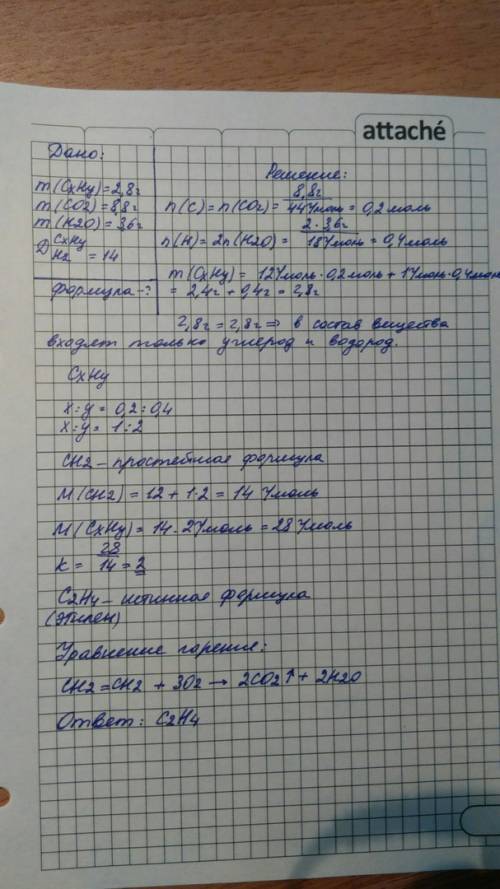 attaché
Дано:
Решение:
m(CxHy)=2,8г
m(CO2)=8,8г
m(H2O)=3,6г
D CxHy/H2 = 14
формула-?
n(C)=n(CO2)= 8,8г/44г/моль = 0,2моль
n(H)=2n(H2O)= 2·3,6г/18г/моль = 0,4моль
m(CxHy)= 12г/моль·0,2моль + 1г/моль·0,4моль
= 2,4г + 0,4г = 2,8г
2,8г=2,8г ⇒ в состав вещества
входят только углерод и водород.
CxHy
x:y= 0,2:0,4
x:y= 1:2
CH2 – простейшая формула
M(CH2) = 12 + 1·2 = 14 г/моль
M(CxHy)= 14·2г/моль = 28г/моль
k= 28/14 = 2
C2H4 – истинная формула
(этилен)
Уравнение горения:
CH2=CH2 + 3O2 → 2CO2↑ + 2H2O
Ответ: C2H4